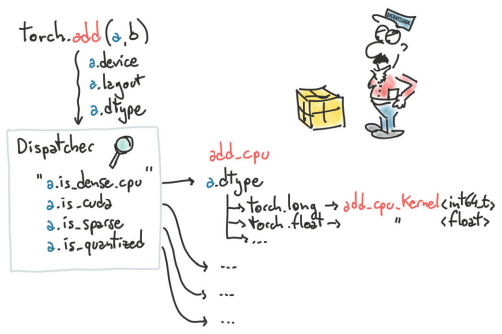 torch.add(a,b)
a.device
a.layout
a.dtype
Dispatcher
"a.is_dense.cpu"
a.is_cuda
a.is_sparse
a.is_quantized
add_cpu
a.dtype
torch.long → add_cpu_kernel<int64_t>
torch.float → " <float>
...
...
...
...